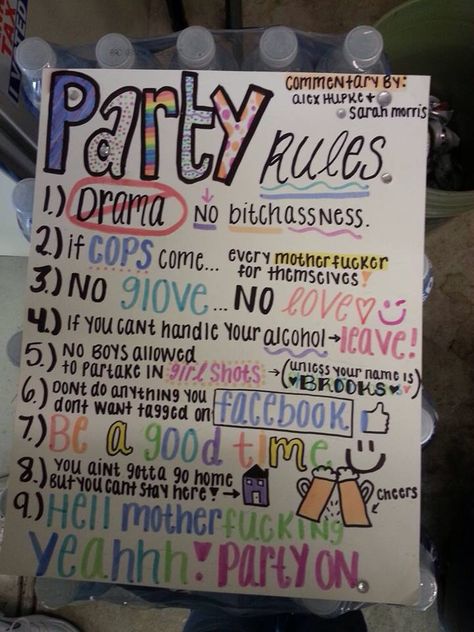 Party Rules
COMMENTARY BY:
alex HUPKE +
sarah morris
1.) Drama NO bitchassness.
2.) if COPS come... every motherfucker
for themselves!
3.) NO glove... NO love
4.) If you cant handle your alcohol → leave!
5.) NO BOYS allowed
to partake in girl shots → (unless your name is
BROOKS)
6.) DONT do anything you
dont want tagged on facebook
7.) Be a good time
8.) you aint gotta go home
But you cant stay here! →
cheers
9.) Hell motherfucking
yeahhh! Party ON.